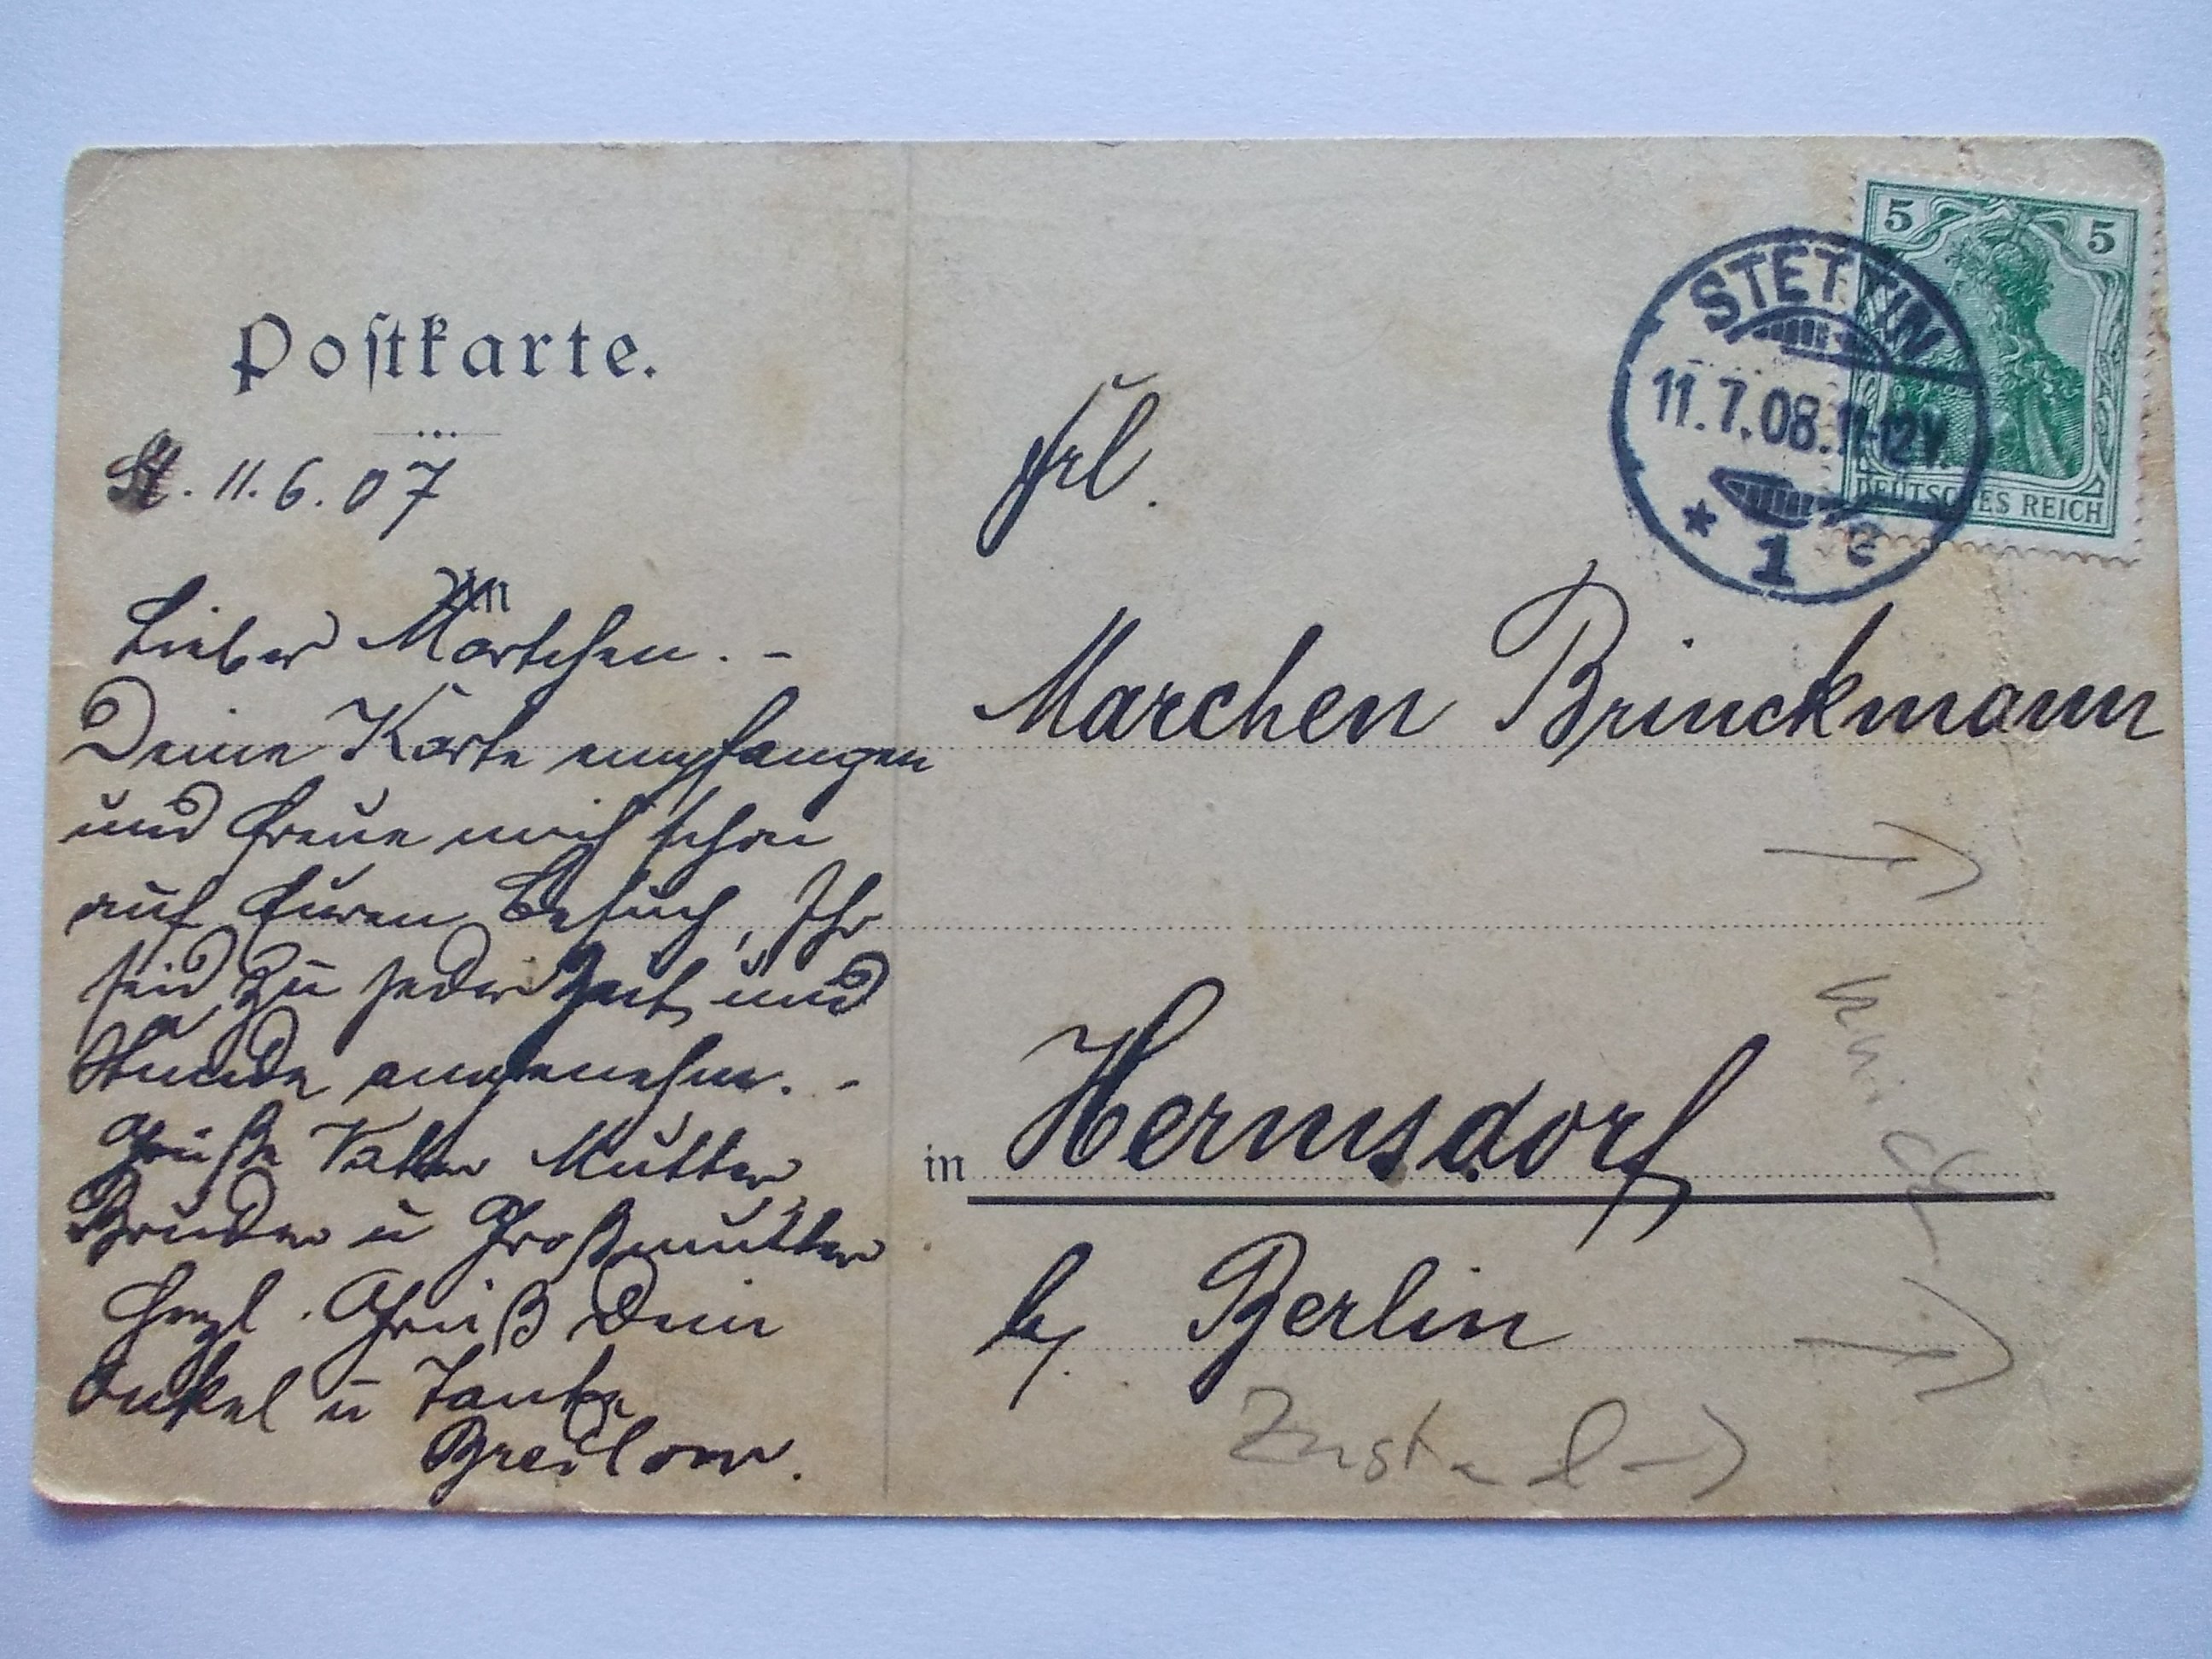 Postkarte.
St. 11.6.07
Lieber Martchen. -
Deine Karte empfangen
und freue mich schon
auf Euren Besuch, Ihr
seid zu jeder Zeit und
Stunde angenehm. -
Grüße Vater Mutter,
Bruder u Großmutter
Herzl. Gruß Dein
Onkel u Tante
Breslow.
STETTIN
11.7.08.11-12V.
* 1 c
5 5
DEUTSCHES REICH
Frl.
Marchen Brinckmann
in Hermsdorf
b/. Berlin